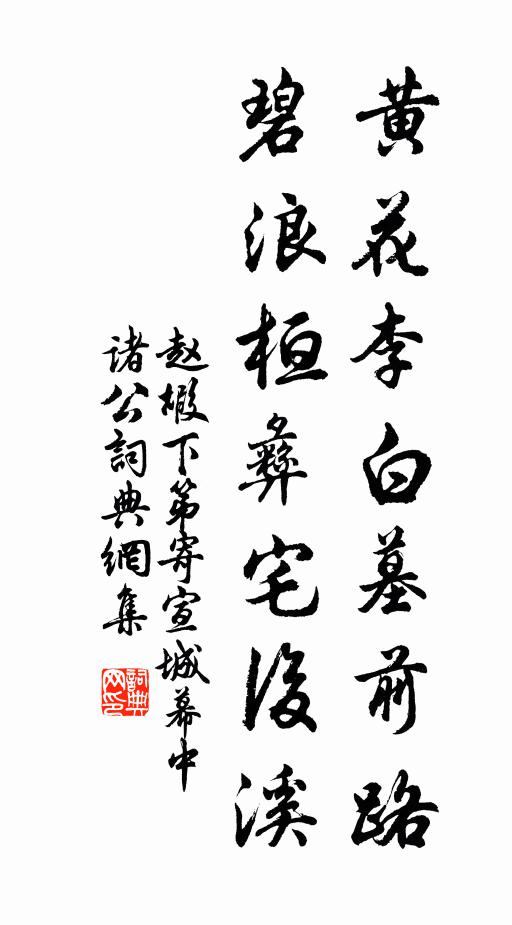 黄花李白墓前路
碧浪桓彝宅後溪
赵椵下第寄宣城幕中
诸公詞典網集
詞典网印